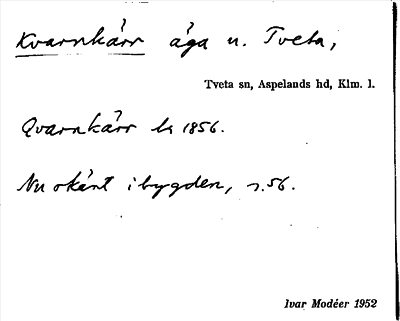 Kvarnkärr äga u. Tveta,
Tveta sn, Aspelands hd, Klm. l.
Qvarnkärr lk 1856.
Nu okänt i bygden, s. 56.
Ivar Modéer 1952